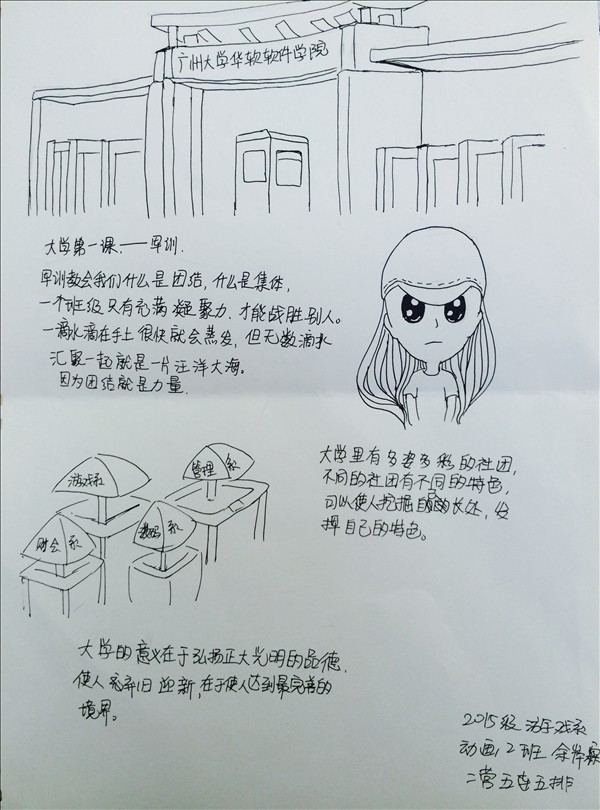 广州大学华软软件学院
大学第一课.——军训.
军训教会我们什么是团结,什么是集体,
一个班级只有充满凝聚力.才能战胜别人。
一滴水滴在手上很快就会蒸发,但无数滴水
汇聚一起就是一片汪洋大海。
因为团结就是力量.
大学里有多姿多彩的社团,
不同的社团有不同的特色,
可以使人挖掘自的长处,发
挥自己的特色。
游戏系
管理系
财会系
数码系
大学的意义在于弘扬正大光明的品德.
使人弃旧迎新,在于使人达到最完善的
境界。
2015级 游戏系
动画12班 余
二营五连五排